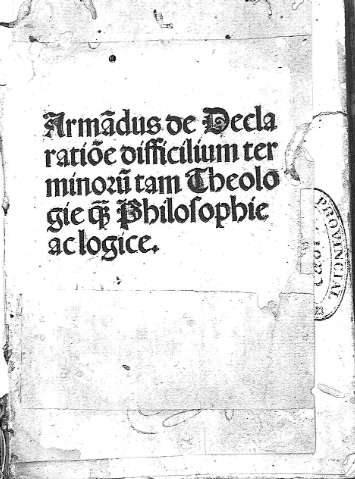 Armãdus de Decla
ratiõe difficilium ter
minorũ tam Theolo
gie q̃ Philoſophie
ac logice.
PROVINCIAL